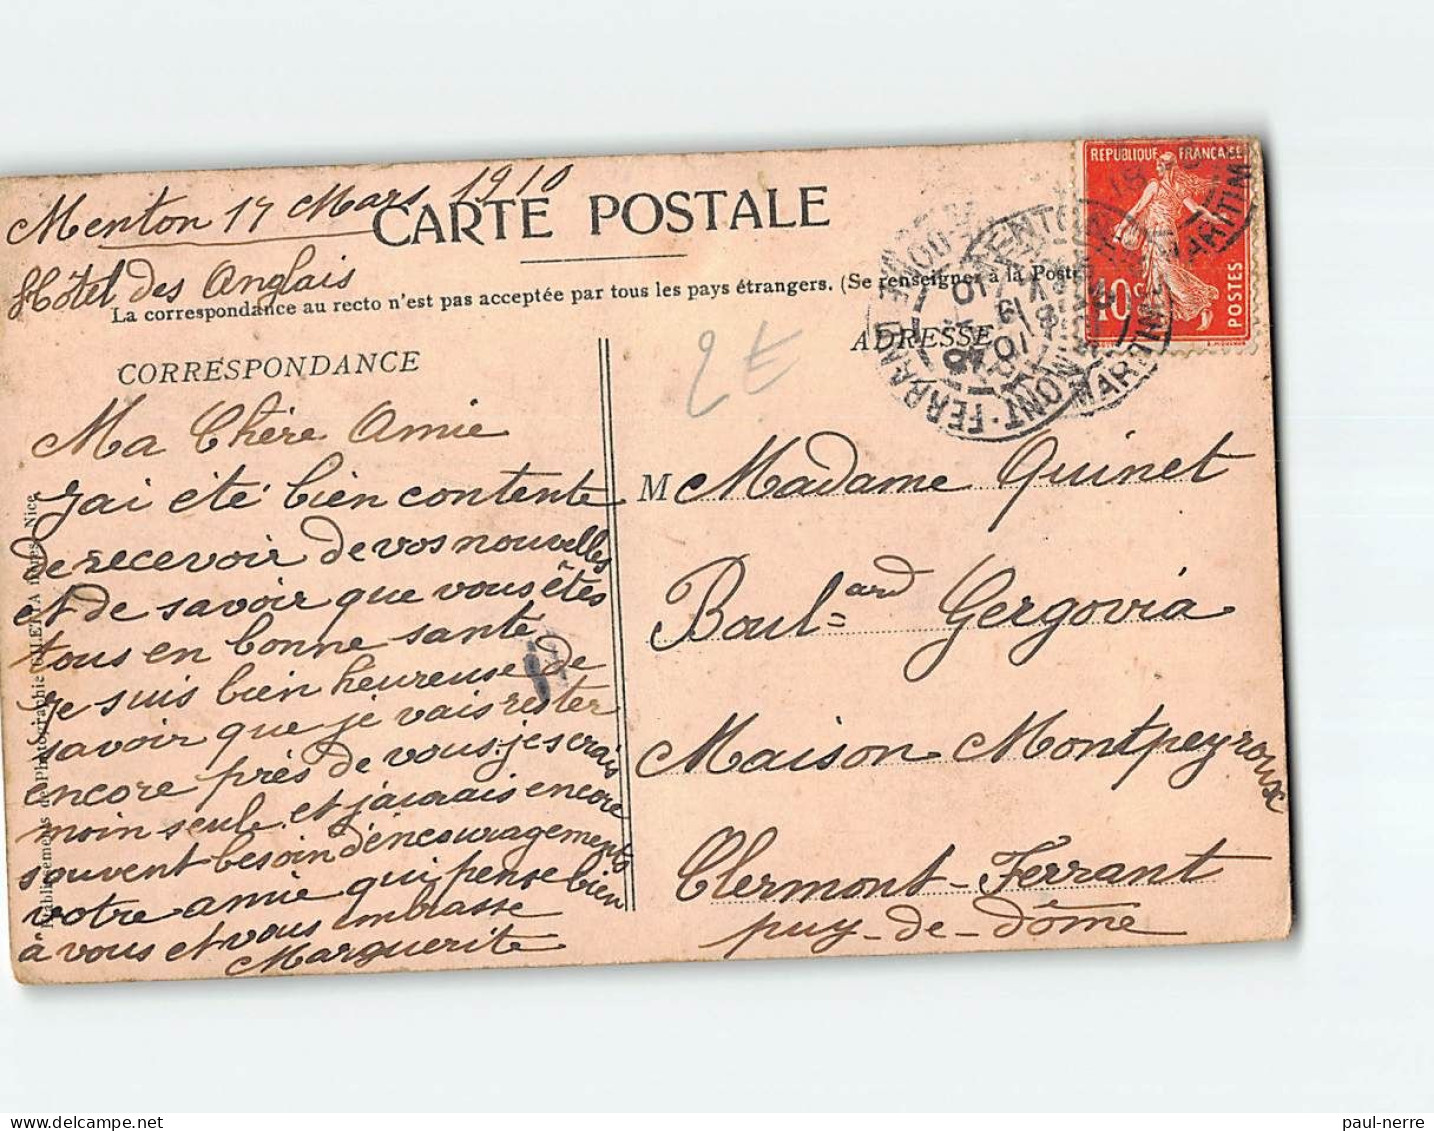 Menton 17 Mars 1910
Hôtel des Anglais
CARTE POSTALE
La correspondance au recto n'est pas acceptée par tous les pays étrangers. (Se renseigner à la Poste
CORRESPONDANCE
ADRESSE
2€
Ma Chère Amie
J'ai été bien contente
de recevoir de vos nouvelles
et de savoir que vous êtes
tous en bonne santé
je suis bien heureuse de
savoir que je vais rester
encore près de vous. je serais
moin seule et j'aurais encore
souvent besoin d'encouragements
votre amie qui pense bien
à vous et vous embrasse
Marguerite
M Madame Quinet
Boul=ard Gergovia
Maison Montpeyroux
Clermont-Ferrant
puy-de-Dôme
REPUBLIQUE FRANÇAISE
10
POSTES
MENTON
ALPES MARITIMES
CLERMONT-FERRAND
PUY-DE-DOME
Etablissements de Photographie GILETTA Nice
paul-nerre